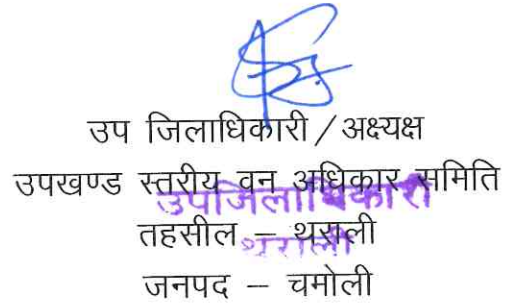 उप जिलाधिकारी / अक्ष्यक्ष
उपखण्ड स्तरीय वन अधिकार समिति
उपजिलाधिकारी
तहसील – थराली
थराली
जनपद – चमोली